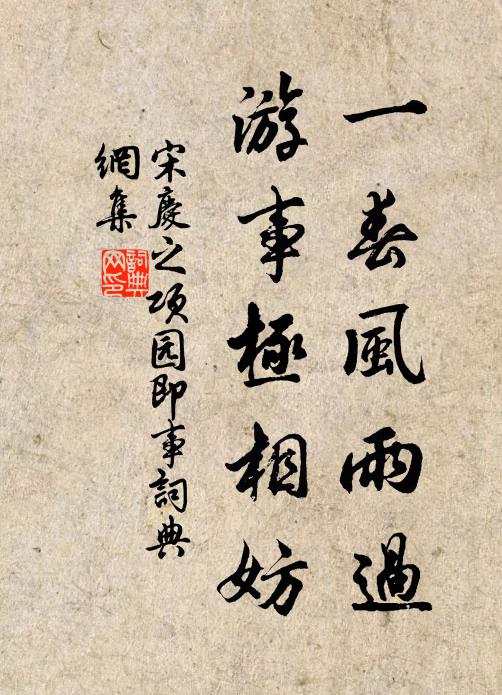 一春風雨過
游事極相妨
宋慶之項园即事詞典
網集
詞典网印